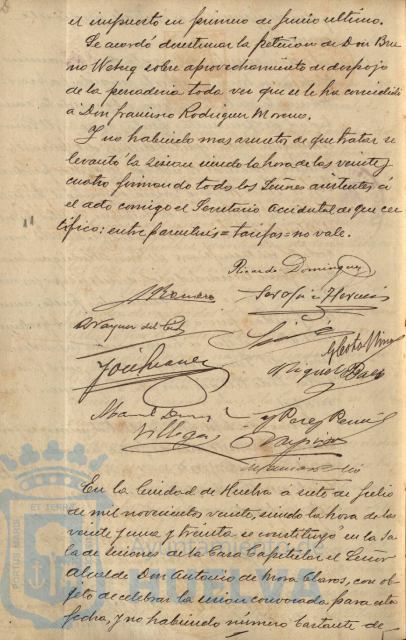 el impuesto en primero de Junio ultimo.
Se acordó desestimar la peticion de Don Bru
no Wetzig sobre aprovechamiento de despojo
de la panaderia toda vez que se le ha concedido
á Don Francisco Rodriguez Moreno.
Y no habiendo mas asuntos de que tratar se
levantó la sesion siendo la hora de las veinte y
cuatro firmando todos los Señores asistentes á
el acto conmigo el Secretario accidental de que cer
tifico: entre parentesis = tarifas = no vale.
Ricardo Dominguez
J. Romero
Serafin
Vazquez del
José Suarez
Miguel Baez
Manuel
Villegas
y Perez
En la Ciudad de Huelva á siete de Julio
de mil novecientos veinte, siendo la hora de las
veinte y una y treinta se constituyó en la Sa
la de sesiones de la Casa Capitular el Señor
Alcalde Don Antonio de Mora Claros, con ob
jeto de celebrar la sesion convocada para esta
fecha, y no habiendo número bastante de
PORTUS MARIS
ET TERRAE